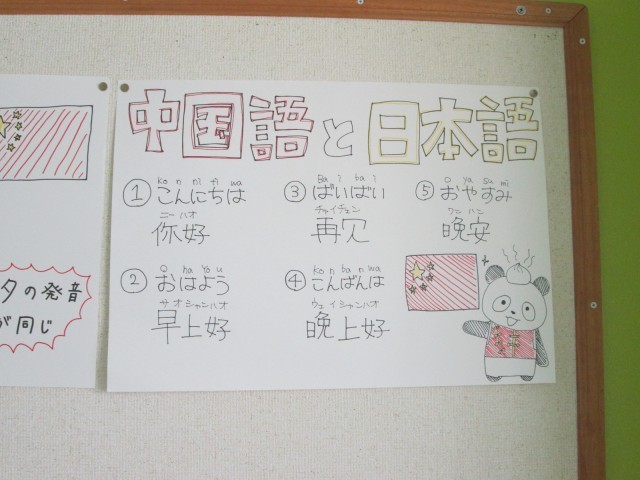 タの発音
が同じ
中国語と日本語
① ko n ni ti wa
こんにちは
ニーハオ
你好
② O ha yo u
おはよう
サオシャンハオ
早上好
③ Ba i ba i
ばいばい
チャイチェン
再见
④ ko n ba n wa
こんばんは
ウェイシャンハオ
晩上好
⑤ O ya su mi
おやすみ
ワンハン
晩安